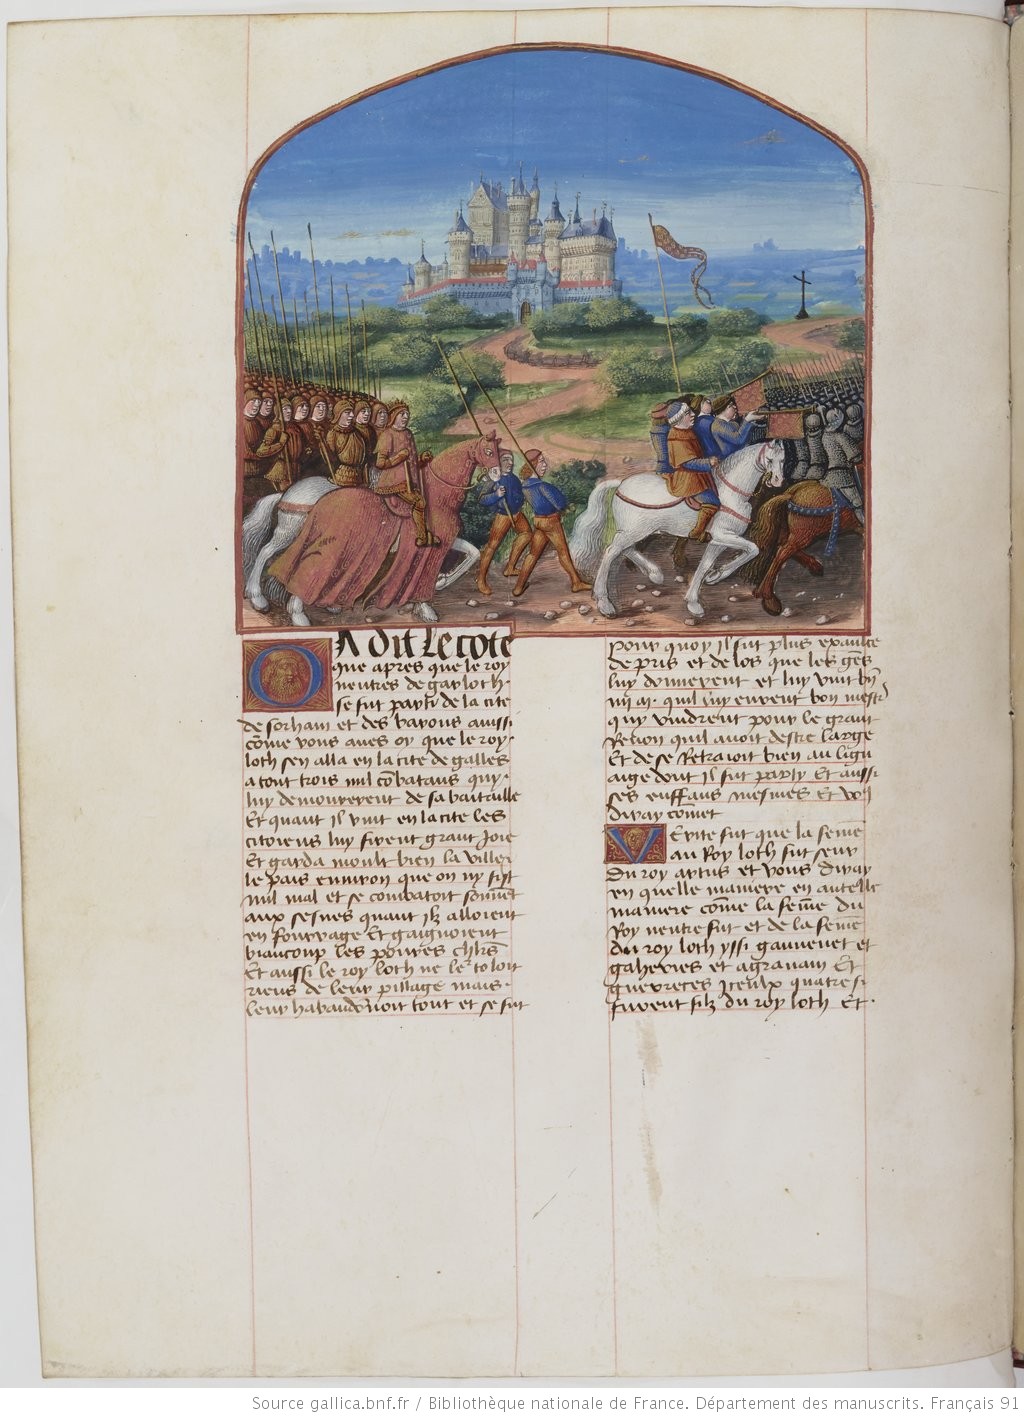 OR dit le cõte
que apres que le roy
neutres de garloth
se fut party de la cite
de sorham et des barons aussi
cõme vous aues oy que le roy
loth sen alla en la cite de galles
a tout trois mil cõbatans quy
luy demourerent de sa bataille
Et quant il vint en la cite les
citoiens luy firent grant ioie
Et garda moult bien la ville
le pais enuiron que on ny fist
nul mal et se combatoit souuẽt
aux sesnes quant ilz alloient
en fourrage Et gaignoient
biaucoup les poures chlr̃s
Et aussi le roy loth ne le toloit
riens de leur pillage mais
leur habandonoit tout et se fut
pour quoy il fut plus exaulce
de pris et de los que les gẽs
luy donnerent et luy vint biẽ
iiii m. quil luy eurent bon mestr̃
quy vindrent pour le grant
Renon quil auoit destre large
Et de se Retraioit bien au lign
aige dont il fut party Et aussi
ses enffans mesmes Et vo9
diray comẽt
VErite fut que la feme
au Roy loth fut seur
du roy artus et vous diray
en quelle maniere en autelle
maniere cõme la feme du
Roy neutre fut et de la feme
du roy loth yssi gauuenet et
gaheries et agrauain Et
guerretes Iceulx quatre si
furent filz du roy loth Et
Source gallica.bnf.fr / Bibliothèque nationale de France. Département des manuscrits. Français 91